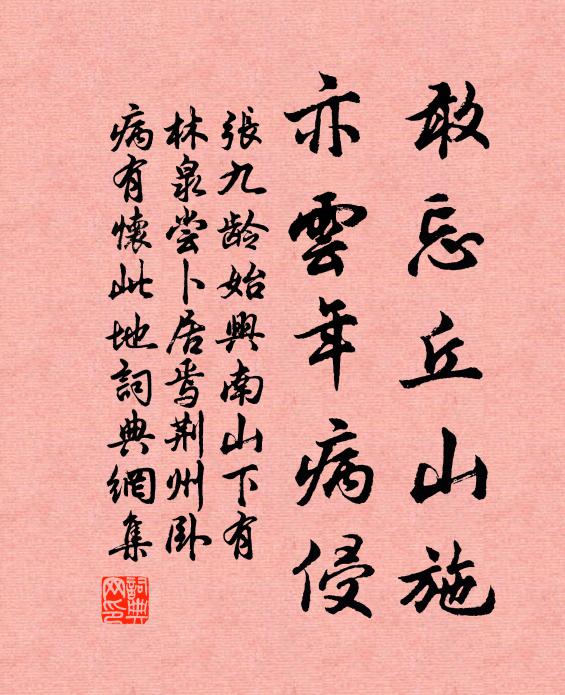 敢忘丘山施
亦雲年病侵
張九龄始興南山下有
林泉尝卜居焉荆州卧
病有懷此地詞典網集
詞典
网印